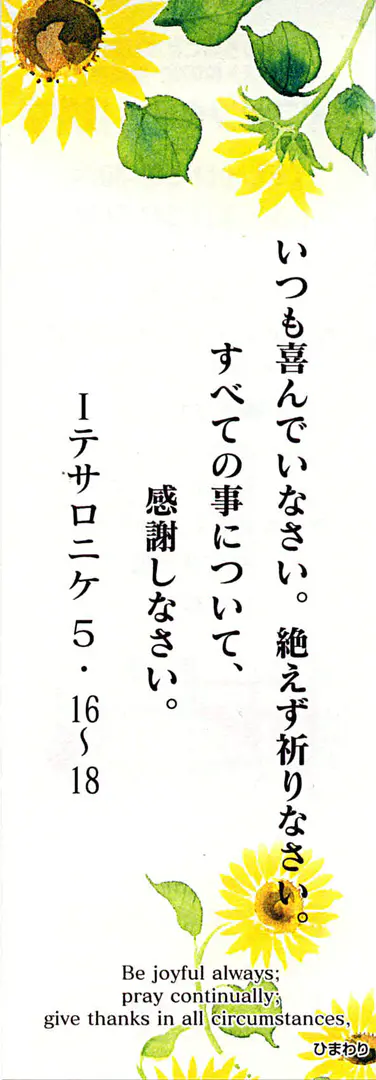 いつも喜んでいなさい。絶えず祈りなさい。
すべての事について、
感謝しなさい。
Iテサロニケ 5・16~18
Be joyful always;
pray continually;
give thanks in all circumstances,
ひまわり